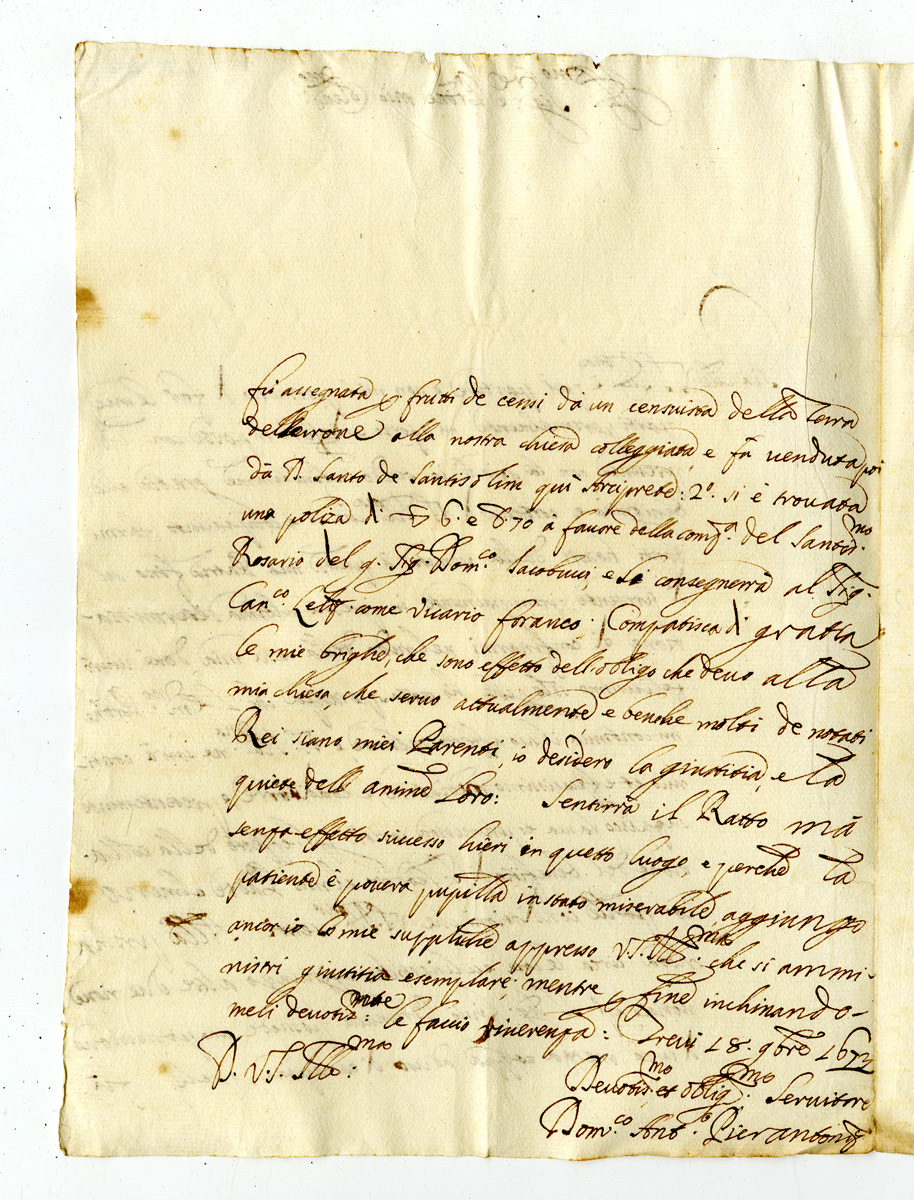 fù assegnata p frutti de censi dà un censuista della Terra
alla nostra chiesa colleggiata, e fù venduta poi
dà D. Santo de Santis olim quì Arciprete: 2°. si è trovata
una poliza di 6. e 8.70 à favore della comp.a del Santiss.mo
Rosario del q. Sig. Dom.co Iacobucci, e si consegnerrà al Sig.
Can.co come vicario foraneo. Compatisca di gratia
le mie brighe, che sono effetto dell'obligo che devo alla
mia chiesa, che servo attualmente, e benche molti de notati
Rei siano miei Parenti, io desidero la giustitia, e la
quiete dell anime loro: Sentirrà il Ratto mà
senza effetto successo hieri in questo luogo, e perche la
patiente è povera pupilla in stato miserabile aggiungo
ancor io le mie suppliche appresso V.S. Ill.ma che si ammi-
nistri giustitia esemplare; mentre p fine inchinando-
meli devotiss.mte le faccio riverenza: Trevi 18. 9bre 1673
D. V.S. Ill.ma:
Devotiss.mo et oblig.mo Servitore
Dom.co Ant.o Pierantonij